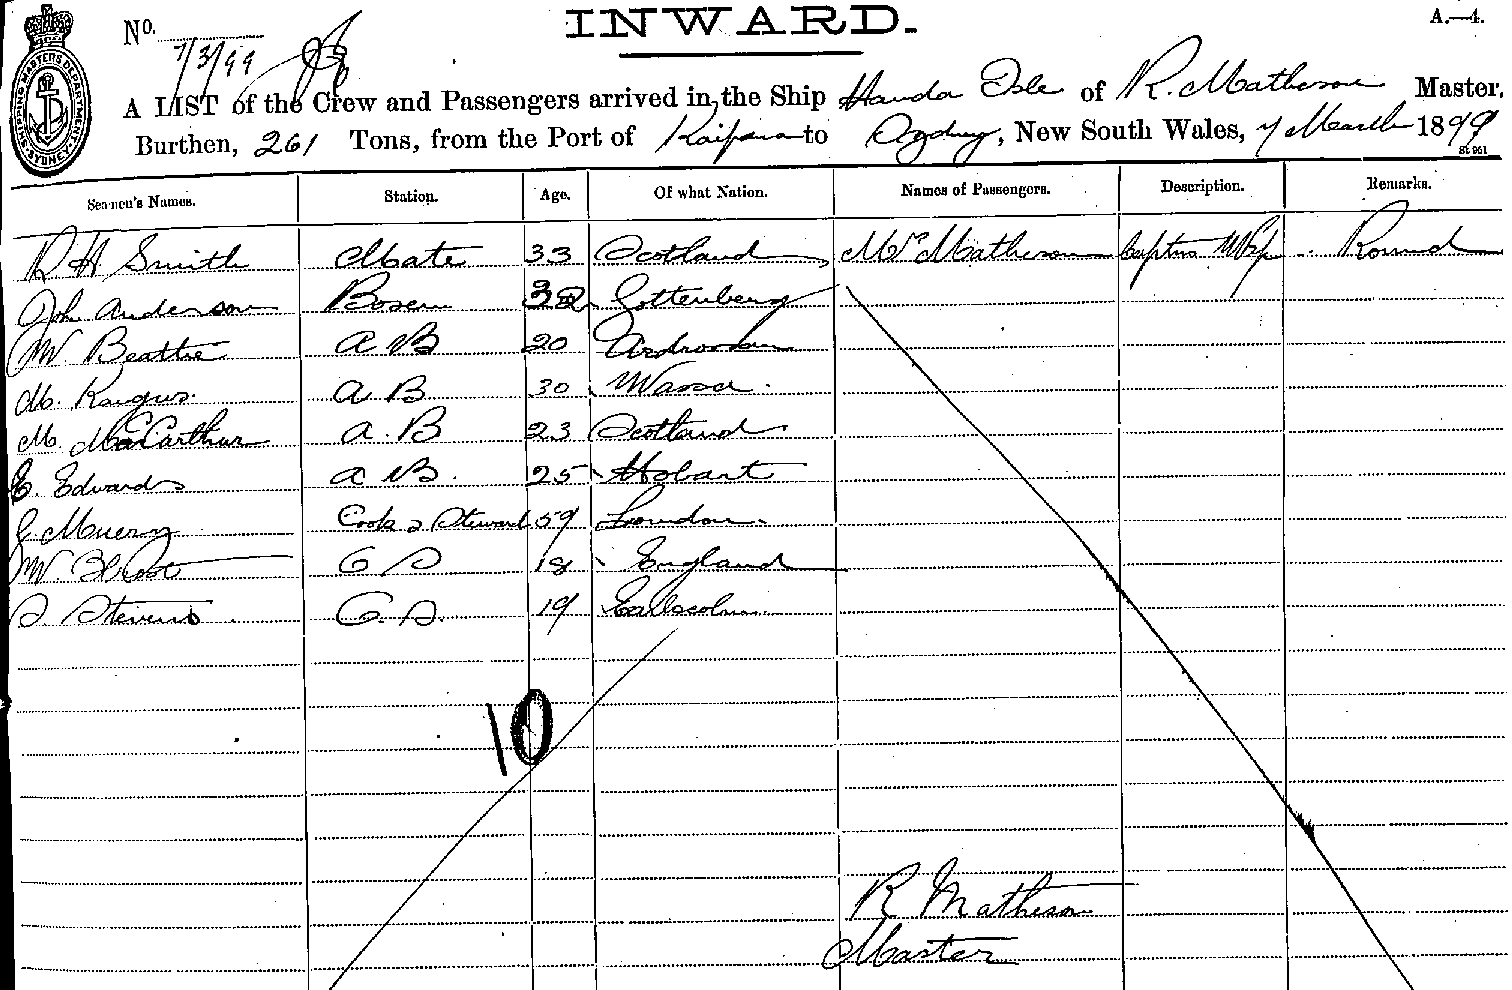 INWARD.
A.—4.
No.
7/3/99
SHIPPING MASTERS DEPARTMENT SYDNEY
A LIST of the Crew and Passengers arrived in the Ship Handa Isle of R. Matheson Master,
Burthen, 261 Tons, from the Port of Kaipara to Sydney, New South Wales, 7 March 1899
Seamen's Names. Station. Age. Of what Nation. Names of Passengers. Description. Remarks.
R H Smith Mate 33 Scotland Mrs Matheson Captns Wife Round
John Anderson Bosen 32 Gottenberg
W. Beattie A B 20 Ardrossan
M. Kangus A B 30 Wassa.
M. MacCarthur A.B 23 Scotland
E. Edwards A B. 25 Hobart
Cook & Steward 59 London.
W. O S 18 England
S. Stevens O.S. 19
10
R Matheson
Master